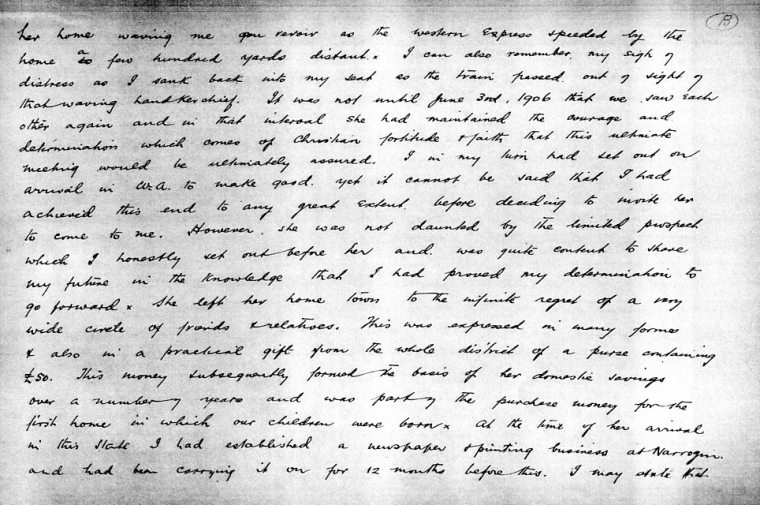 (B)
her home waving me au revoir as the western Express speeded by the
home a few hundred yards distant. I can also remember my sigh of
distress as I sank back into my seat as the train passed out of sight of
that waving handkerchief. It was not until June 3rd, 1906 that we saw each
other again and in that interval she had maintained the courage and
determination which comes of Christian fortitude & faith that this ultimate
meeting would be ultimately assured. I in my turn had set out on
arrival in W.A. to make good. yet it cannot be said that I had
achieved this end to any great extent before deciding to invite her
to come to me. However, she was not daunted by the limited prospect
which I honestly set out before her and was quite content to share
my future in the knowledge that I had proved my determination to
go forward x She left her home town to the infinite regret of a very
wide circle of friends & relatives. This was expressed in many forms
& also in a practical gift from the whole district of a purse containing
£50. This money subsequently formed the basis of her domestic savings
over a number of years and was part of the purchase money for the
first home in which our children were born x At the time of her arrival
in this State I had established a newspaper & printing business at Narrogin.
and had been carrying it on for 12 months before this. I may state that